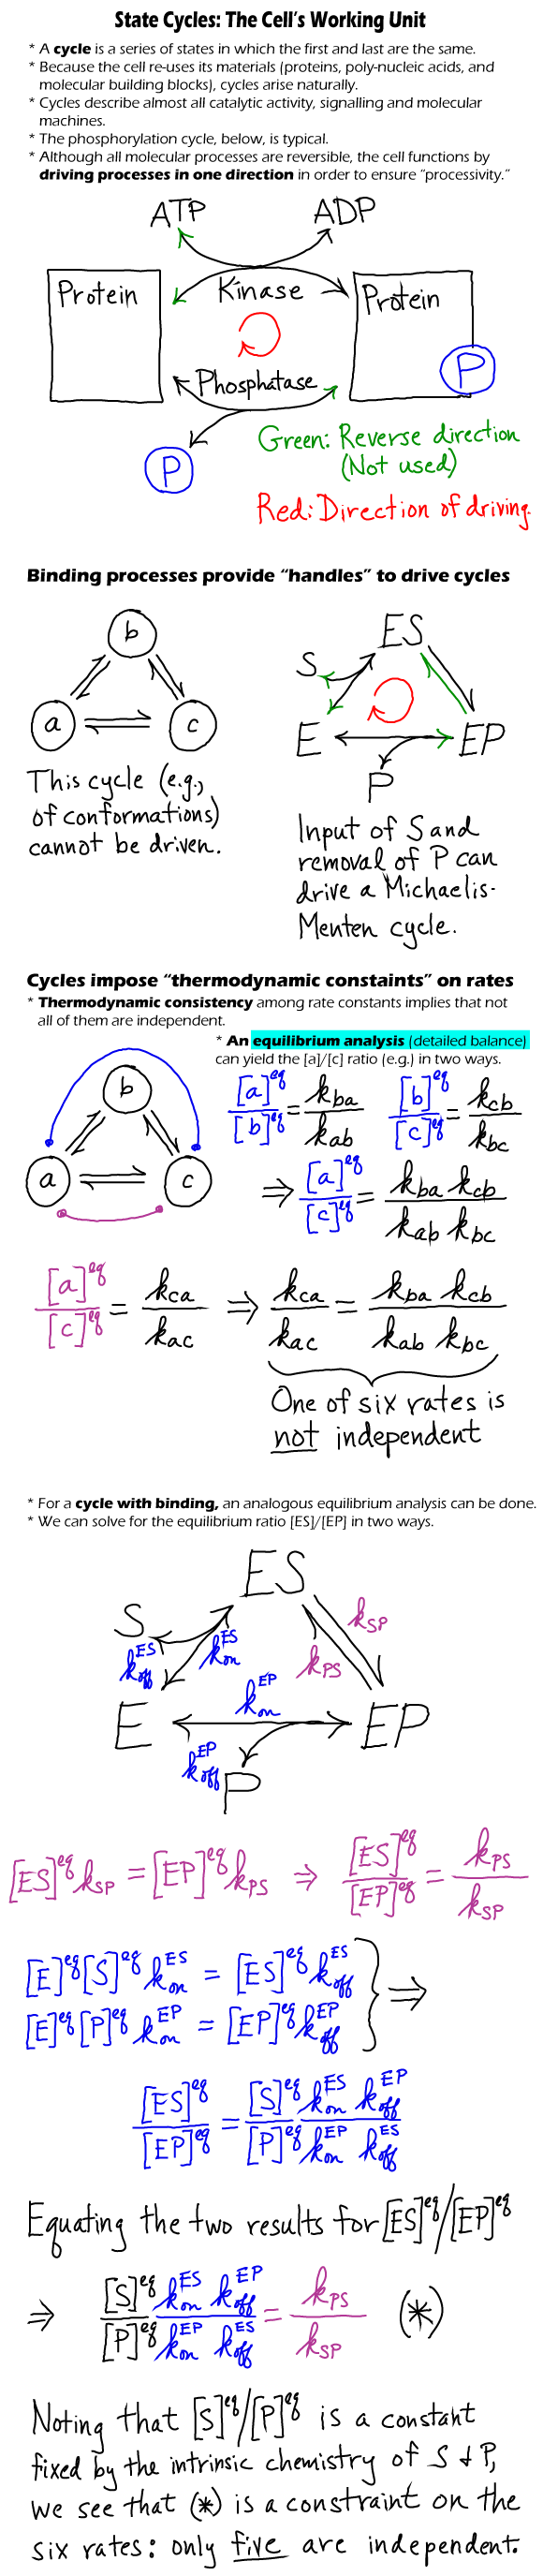 State Cycles: The Cell's Working Unit
* A cycle is a series of states in which the first and last are the same.
* Because the cell re-uses its materials (proteins, poly-nucleic acids, and
molecular building blocks), cycles arise naturally.
* Cycles describe almost all catalytic activity, signalling and molecular
machines.
* The phosphorylation cycle, below, is typical.
* Although all molecular processes are reversible, the cell functions by
driving processes in one direction in order to ensure "processivity."
ATP ADP
Protein Kinase Protein
P
Phosphatase
P
Green: Reverse direction
(Not used)
Red: Direction of driving.
Binding processes provide "handles" to drive cycles
b
a c
This cycle (e.g.,
of conformations)
cannot be driven.
ES
S
E EP
P
Input of S and
removal of P can
drive a Michaelis-
Menten cycle.
Cycles impose "thermodynamic constaints" on rates
* Thermodynamic consistency among rate constants implies that not
all of them are independent.
* An equilibrium analysis (detailed balance)
can yield the [a]/[c] ratio (e.g.) in two ways.
b
a c
[a]^eq/[b]^eq = k_ba/k_ab [b]^eq/[c]^eq = k_cb/k_bc
⇒ [a]^eq/[c]^eq = k_ba k_cb/k_ab k_bc
[a]^eq/[c]^eq = k_ca/k_ac ⇒ k_ca/k_ac = k_ba k_cb/k_ab k_bc
One of six rates is
not independent
* For a cycle with binding, an analogous equilibrium analysis can be done.
* We can solve for the equilibrium ratio [ES]/[EP] in two ways.
ES
S k_SP
k_off^ES k_on^ES k_PS
k_on^EP
E EP
k_off^EP P
[ES]^eq k_SP = [EP]^eq k_PS ⇒ [ES]^eq/[EP]^eq = k_PS/k_SP
[E]^eq [S]^eq k_on^ES = [ES]^eq k_off^ES
[E]^eq [P]^eq k_on^EP = [EP]^eq k_off^EP } ⇒
[ES]^eq/[EP]^eq = [S]^eq k_on^ES k_off^EP/[P]^eq k_on^EP k_off^ES
Equating the two results for [ES]^eq/[EP]^eq
⇒ [S]^eq k_on^ES k_off^EP/[P]^eq k_on^EP k_off^ES = k_PS/k_SP (*)
Noting that [S]^eq/[P]^eq is a constant
fixed by the intrinsic chemistry of S & P,
we see that (*) is a constraint on the
six rates: only five are independent.